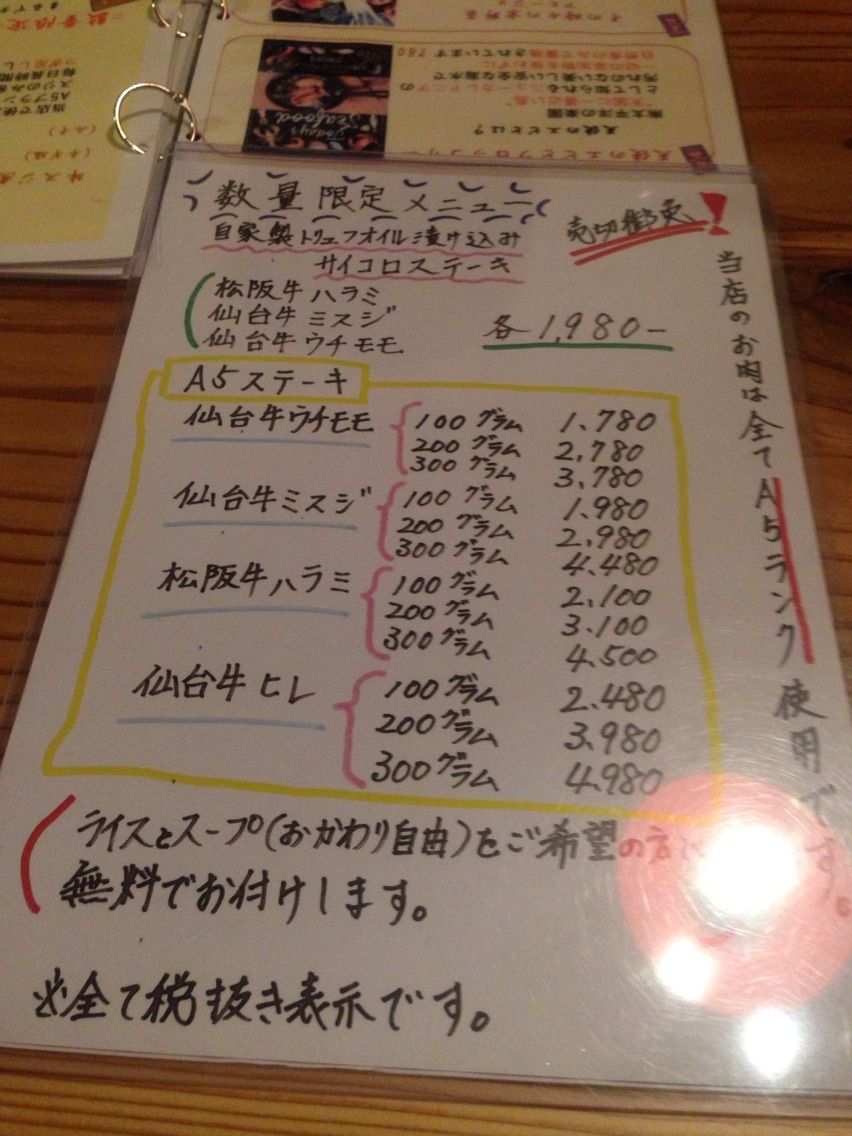 数量限定メニュー
売切御免!
自家製トリュフオイル漬け込み
サイコロステーキ
松阪牛ハラミ
仙台牛ミスジ
仙台牛ウチモモ
各1,980-
A5ステーキ
仙台牛ウチモモ
100グラム 1.780
200グラム 2.780
300グラム 3.780
仙台牛ミスジ
100グラム 1.980
200グラム 2.980
300グラム 4.480
松阪牛ハラミ
100グラム 2.100
200グラム 3.100
300グラム 4.500
仙台牛ヒレ
100グラム 2.480
200グラム 3.980
300グラム 4.980
当店のお肉は全てA5ランク使用です。
ライスとスープ(おかわり自由)をご希望の方
無料でお付けします。
※全て税抜き表示です。
天使のエビとは?
南太平洋の楽園
"天国に一番近い島"
として知られるニューカレドニアの
汚れのない美しい安全な海水で
Today's
Seafood
780